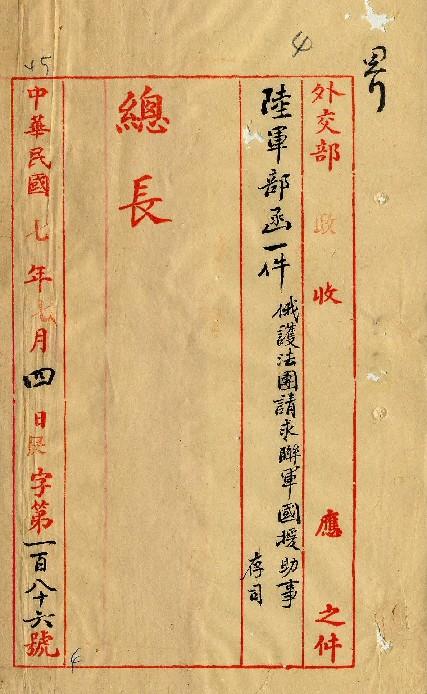 4
界
外交部 收 收 應 之件
陸軍部函一件 俄護法團請求聯軍國援助事
存司
總長
45
中華民國七年七月四日 字第一百八十六號